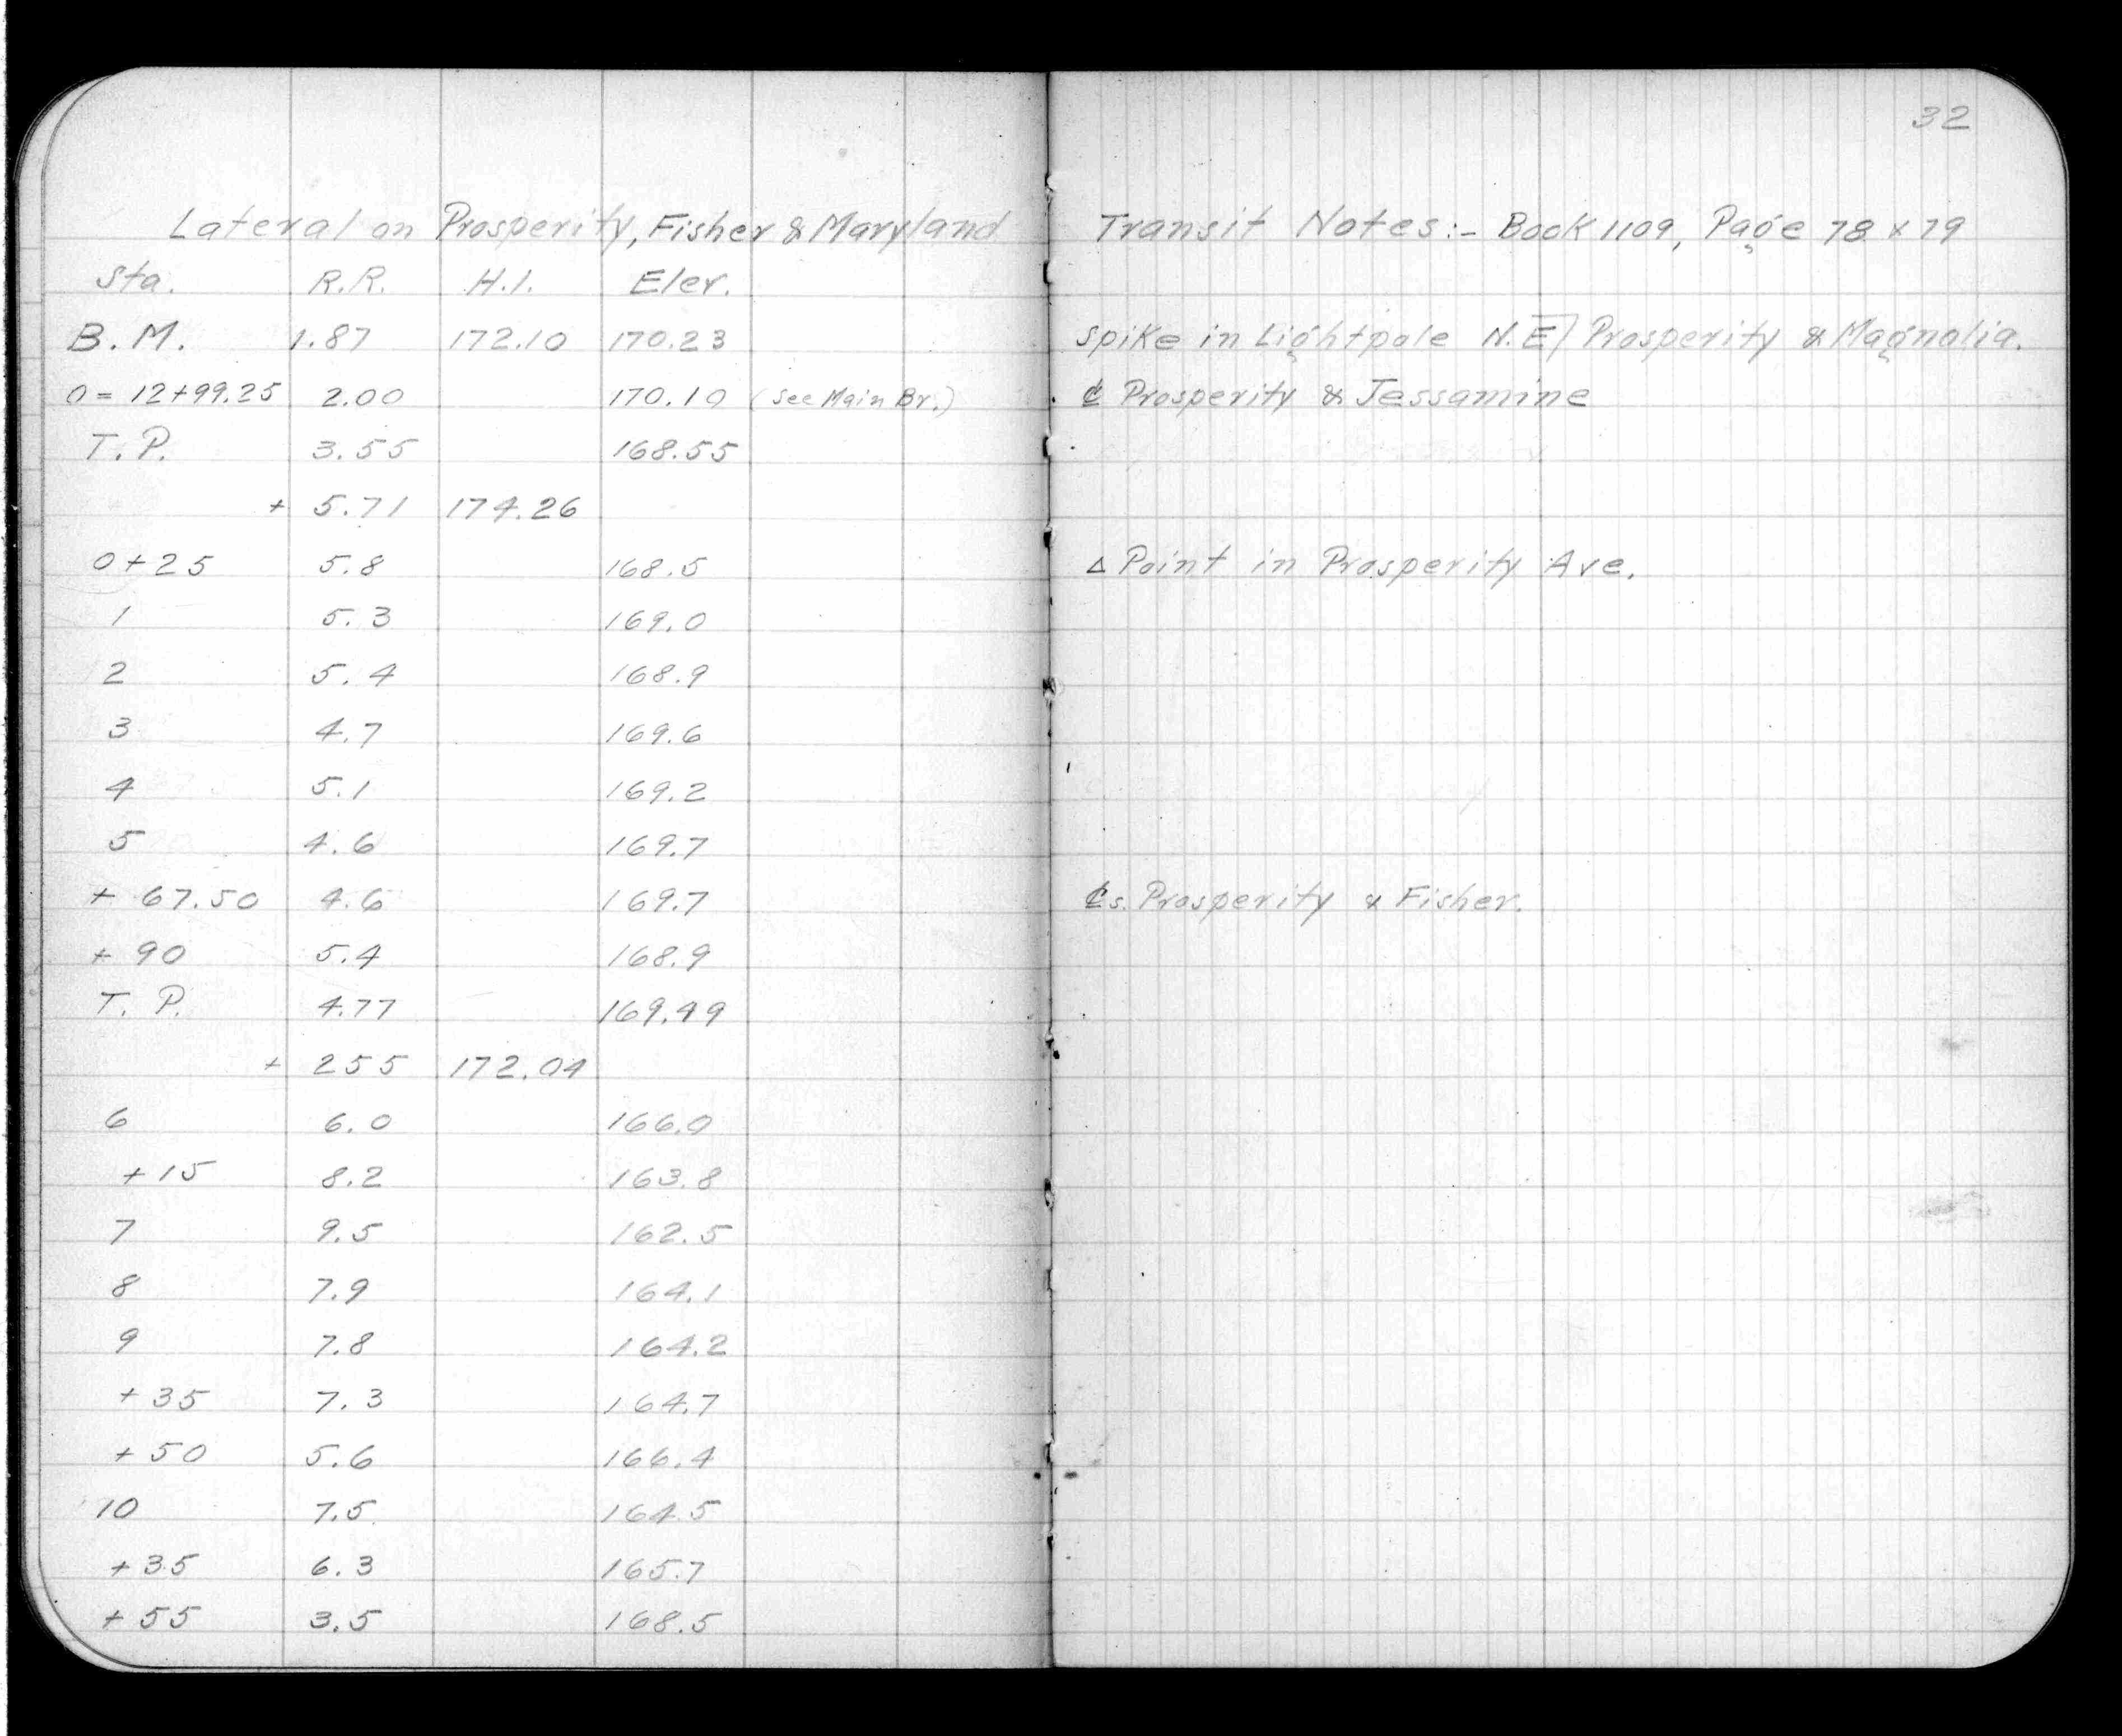 32
Lateral on Prosperity, Fisher & Maryland Transit Notes:- Book 1109, Page 78 & 79
Sta. R.R. H.I. Elev.
B.M. 1.87 172.10 170.23 spike in Lightpole N.E. Prosperity & Magnolia.
0 = 12+99.25 2.00 170.10 (see Main Br.) ℄ Prosperity & Jessamine
T.P. 3.55 168.55
+ 5.71 174.26
0+25 5.8 168.5 △ Point in Prosperity Ave.
1 5.3 169.0
2 5.4 168.9
3 4.7 169.6
4 5.1 169.2
5 4.6 169.7
+ 67.50 4.6 169.7 ℄s. Prosperity & Fisher.
+ 90 5.4 168.9
T.P. 4.77 169.49
+ 255 172.04
6 6.0 166.0
+15 8.2 163.8
7 9.5 162.5
8 7.9 164.1
9 7.8 164.2
+35 7.3 164.7
+50 5.6 166.4
10 7.5 164.5
+35 6.3 165.7
+55 3.5 168.5